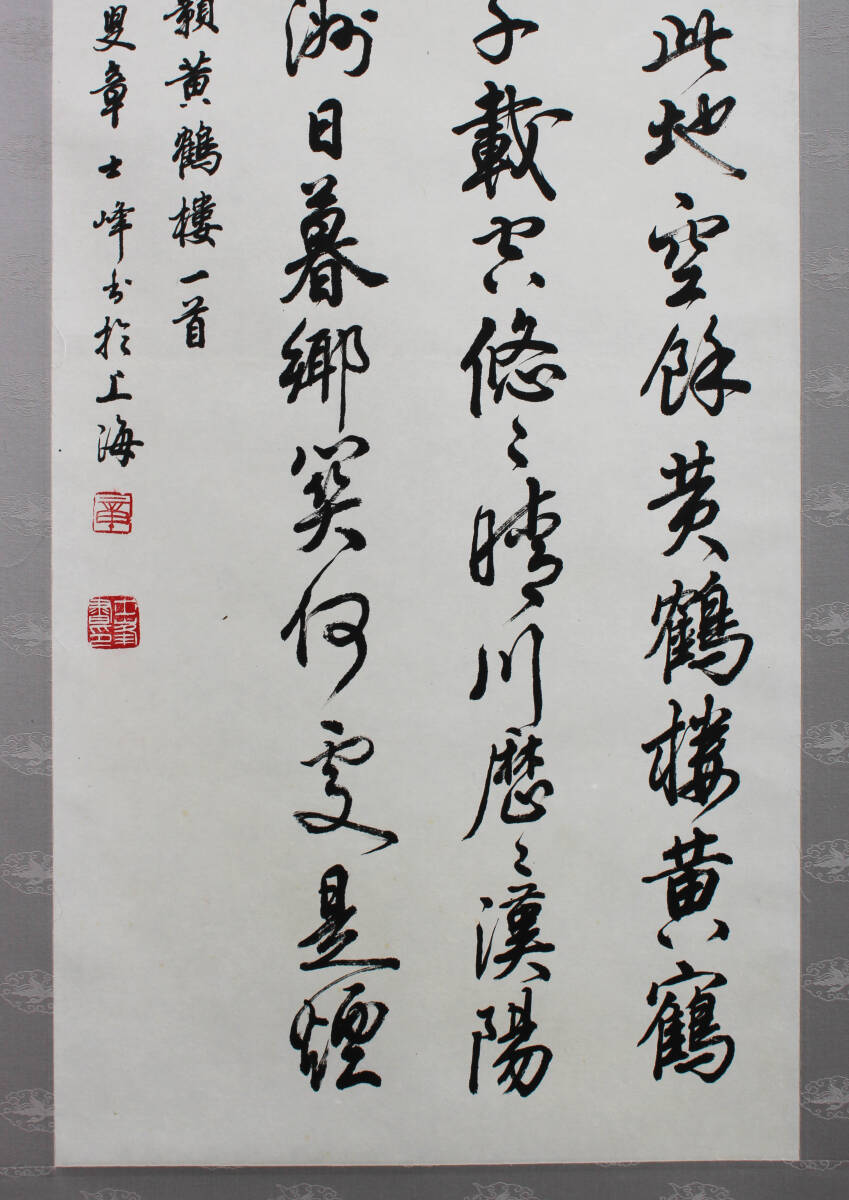 此地空餘黃鶴樓黃鶴
載空悠〻晴川歷〻漢陽
洲日暮鄉關何處是煙
顥黃鶴樓一首
叟章士峰書於上海
章
士峯書印